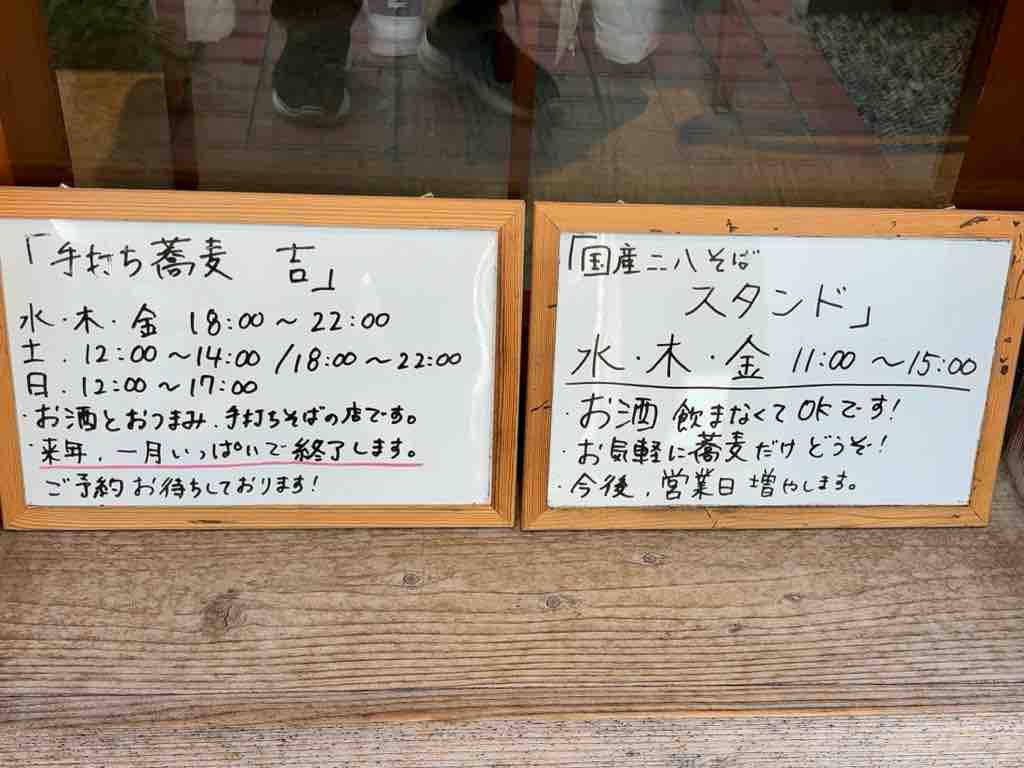 「手打ち蕎麦 吉」
水・木・金 18:00～22:00
土.12:00～14:00/18:00～22:00
日.12:00～17:00
・お酒とおつまみ、手打ちそばの店です。
・来年、一月いっぱいで終了します。
ご予約お待ちしております!
「国産二八そば
スタンド」
水・木・金 11:00～15:00
・お酒飲まなくてOKです!
・お気軽に蕎麦だけどうぞ!
・今後、営業日増やします。